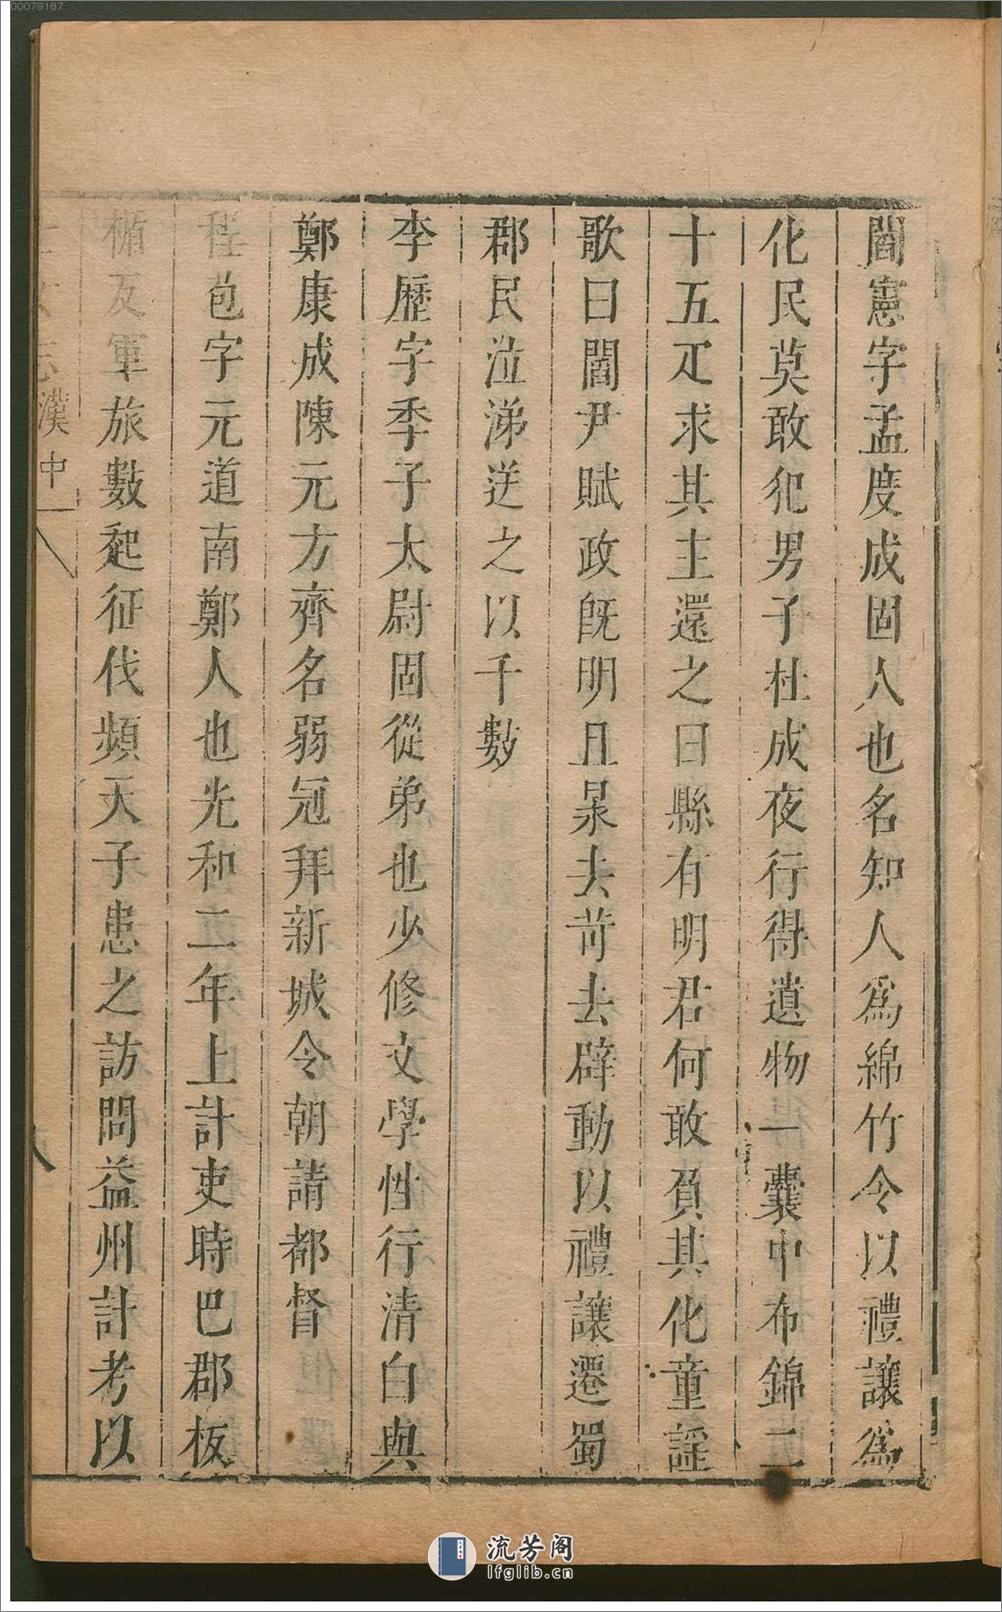 閻憲字孟度成固人也名知人爲綿竹令以禮讓爲
化民莫敢犯男子杜成夜行得遺物一囊中布錦二
十五疋求其主還之曰縣有明君何敢負其化童謡
歌曰閻尹賦政旣明且㫤去苛去辟動以禮讓遷蜀
郡民泣涕送之以千數
李歷字季子太尉固從弟也少修文學性行清白與
鄭康成陳元方齊名弱冠拜新城令朝請都督
程苞字元道南鄭人也光和二年上計吏時巴郡板
楯反軍旅數起征伐頻天子患之訪問益州計考以
士女志漢中
八
00079187
流芳阁
lfglib.cn